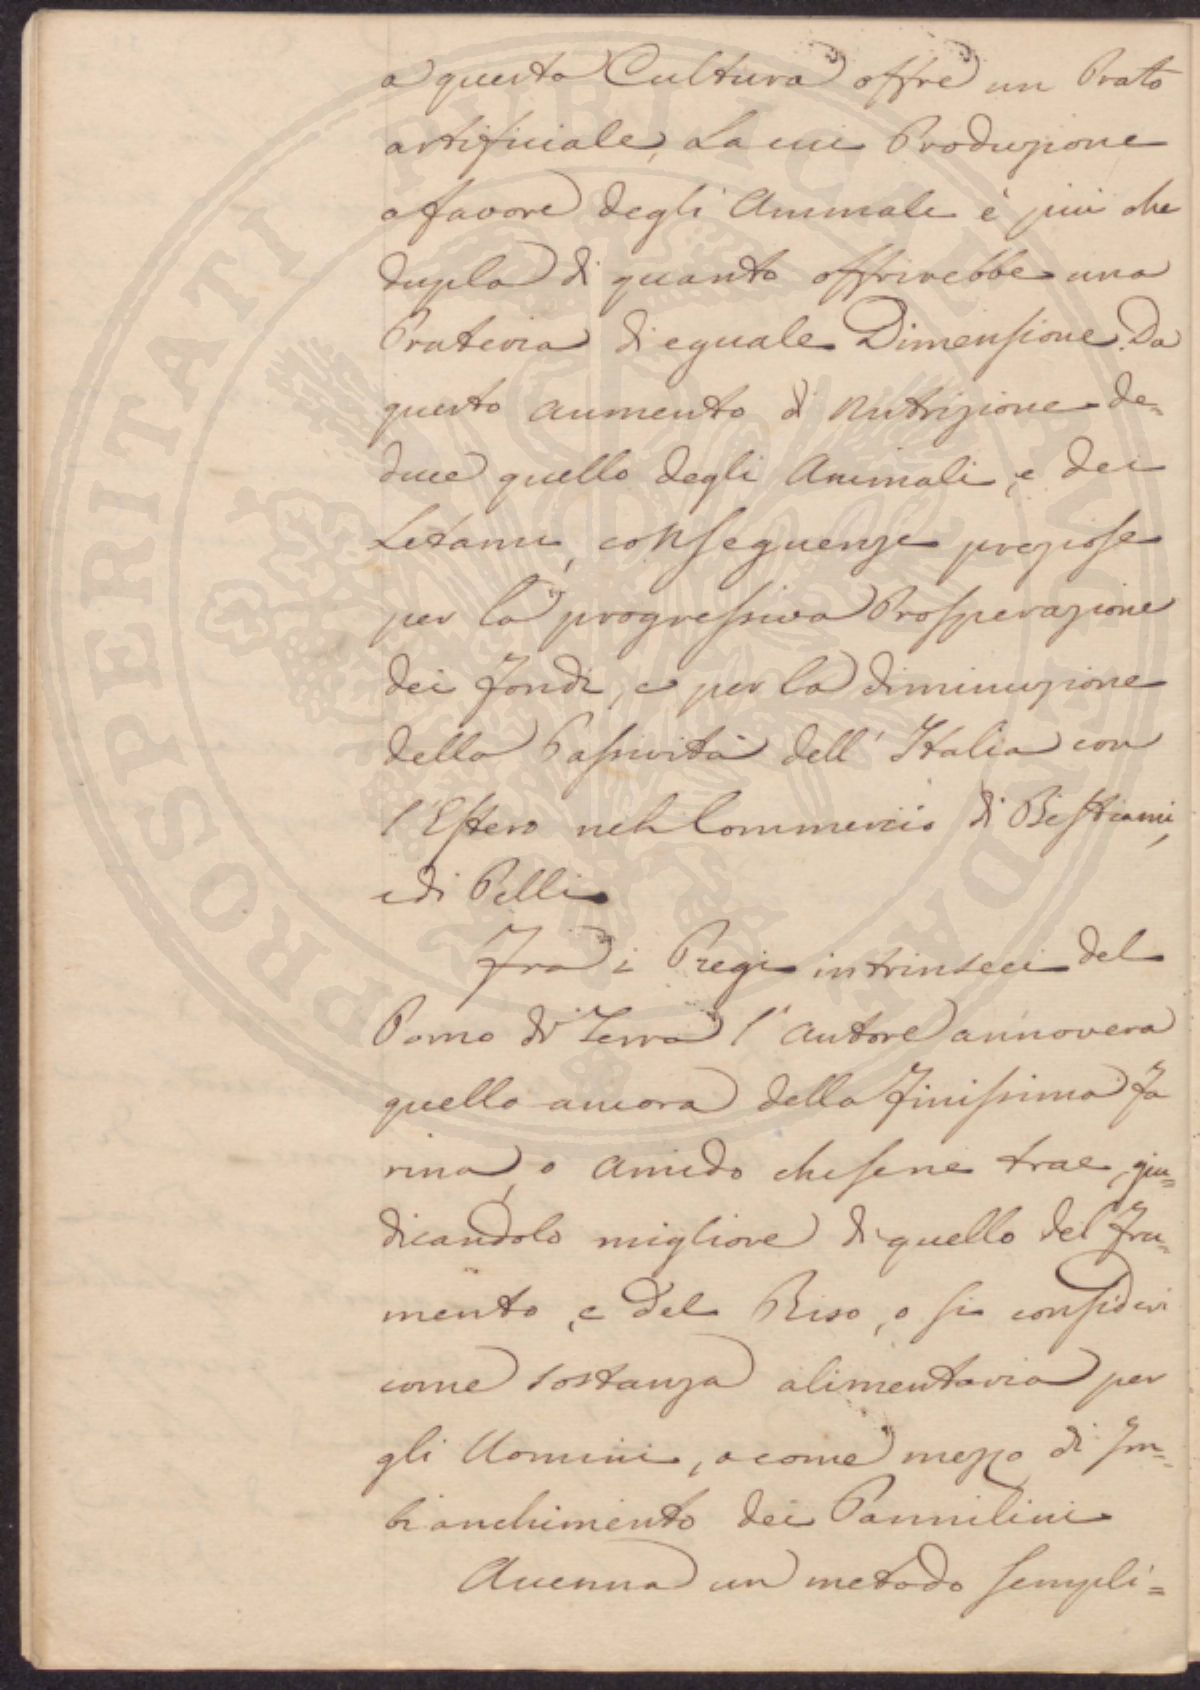 a questa Cultura offre un Prato
artificiale, La cui Produzione
a favore degli Animale è piu che
dupla di quanto offrirebbe una
Prateria di eguale Dimensione. Da
questo aumento di nutrizione de=
duce quello degli Animali, e dei
Letami, conseguenze preziose
per la progressiva Prosperazione
dei fondi, e per la diminuzione
della Passività dell' Italia con
l'Estero nel Commercio di Bestiami,
e di Pelli
Fra i Pregi intrinseci del
Pomo di Terra l' autore annovera
quello ancora della finissima fa
rina, o amido che se ne trae, giu=
dicandolo migliore di quello del fru=
mento, e del Riso, o si consideri
come sostanza alimentaria per
gli Uomini, o come mezzo di Im=
bianchimento dei Pannilini
Accenna un metodo sempli=
PROSPERITATI PUBLICAE AUGENDAE